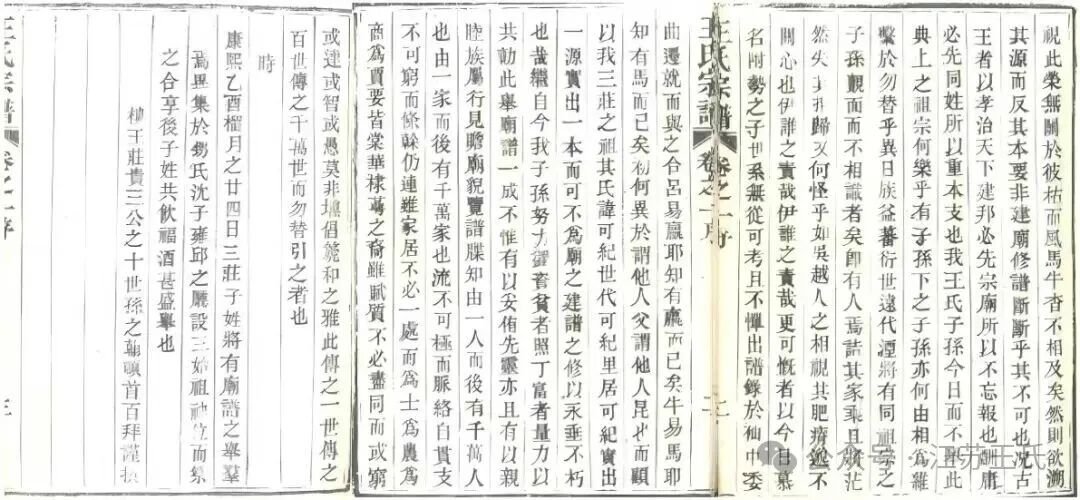 視此榮無關於彼枯而風馬牛杳不相及矣然則欲溯
其源而反其本要非建廟修譜斷斷乎其不可也况古
王者以孝治天下建邦必先宗廟所以不忘報也酬庸
必先同姓所以重本支也我王氏子孫今日而不舉此
典上之祖宗何樂乎有子孫下之子孫亦何由相為維
繫於勿替乎異日族益蕃衍世遠代湮將有同祖宗之
子孫覿面而不相識者矣即有人焉詰其家乘且將茫
然失其歸又何怪乎如吳越人之相視其肥瘠邈不
關心也伊誰之責哉伊誰之責哉更可慨者以今日慕
名附勢之子世系無從可考且不憚出譜錄於袖中委
王氏宗譜 卷之一序
曲遷就而與之合呂易嬴耶知有嬴而已矣牛易馬耶
知有馬而已矣初何異於謂他人父謂他人昆也而顧
以我三莊之祖其氏諱可紀世代可紀里居可紀實出
一源實出一本而可不為廟之建譜之修以永垂不朽
也哉繼自今我子孫努力貧者照丁富者量力以
共勷此舉廟譜一成不惟有以妥侑先靈亦且有以親
睦族屬行見瞻廟貌覽譜牒知由一人而後有千萬人
也由一家而後有千萬家也流不可極而脈絡自貫支
不可窮而條榦仍連雖家居不必一處而為士為農為
商為賈要皆棠華棣萼之裔雖賦質不必盡同而或窮
或達或智或愚莫非塤倡箎和之雅此傳之一世傳之
百世傳之千萬世而勿替引之者也
時
康熙乙酉榴月之廿四日三莊子姓將有廟譜之舉羣
焉畢集於甥氏沈子雍邱之廳設三始祖神位而祭
之合享後子姓共飲福酒甚盛舉也
王莊貴三公之十世孫之翰頓首百拜謹撰
王氏宗譜 卷之一序
公众号·江苏王氏